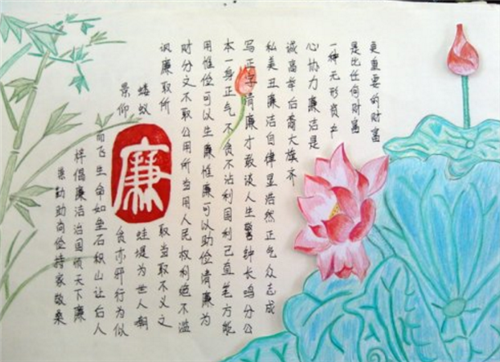 更重要的财富
是比任何财富
一种无形资产
心协力廉洁是
诚高举大旗齐
私美丑廉洁自律显浩然正气众志成
写正字清廉才敢谈人生警钟长鸣分公
本一身正气不贪不沾利国利己画笔方能
用惟俭可以生廉惟廉可以助俭清廉为
时分文不取公用所当用人民权利绝不滥
讽廉取所
取当取不义之
堤为世人嘲
景仰
行为似
廉
而飞生命如垒石积山让后人
倡廉洁治国天下廉
勤助尚俭持家